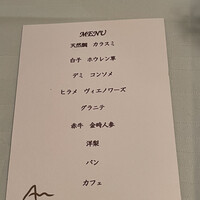 MENU
天然鯛　カラスミ
白子　ホウレン草
デミ　コンソメ
ヒラメ　ヴィエノワーズ
グラニテ
赤牛　金時人参
洋梨
パン
カフェ